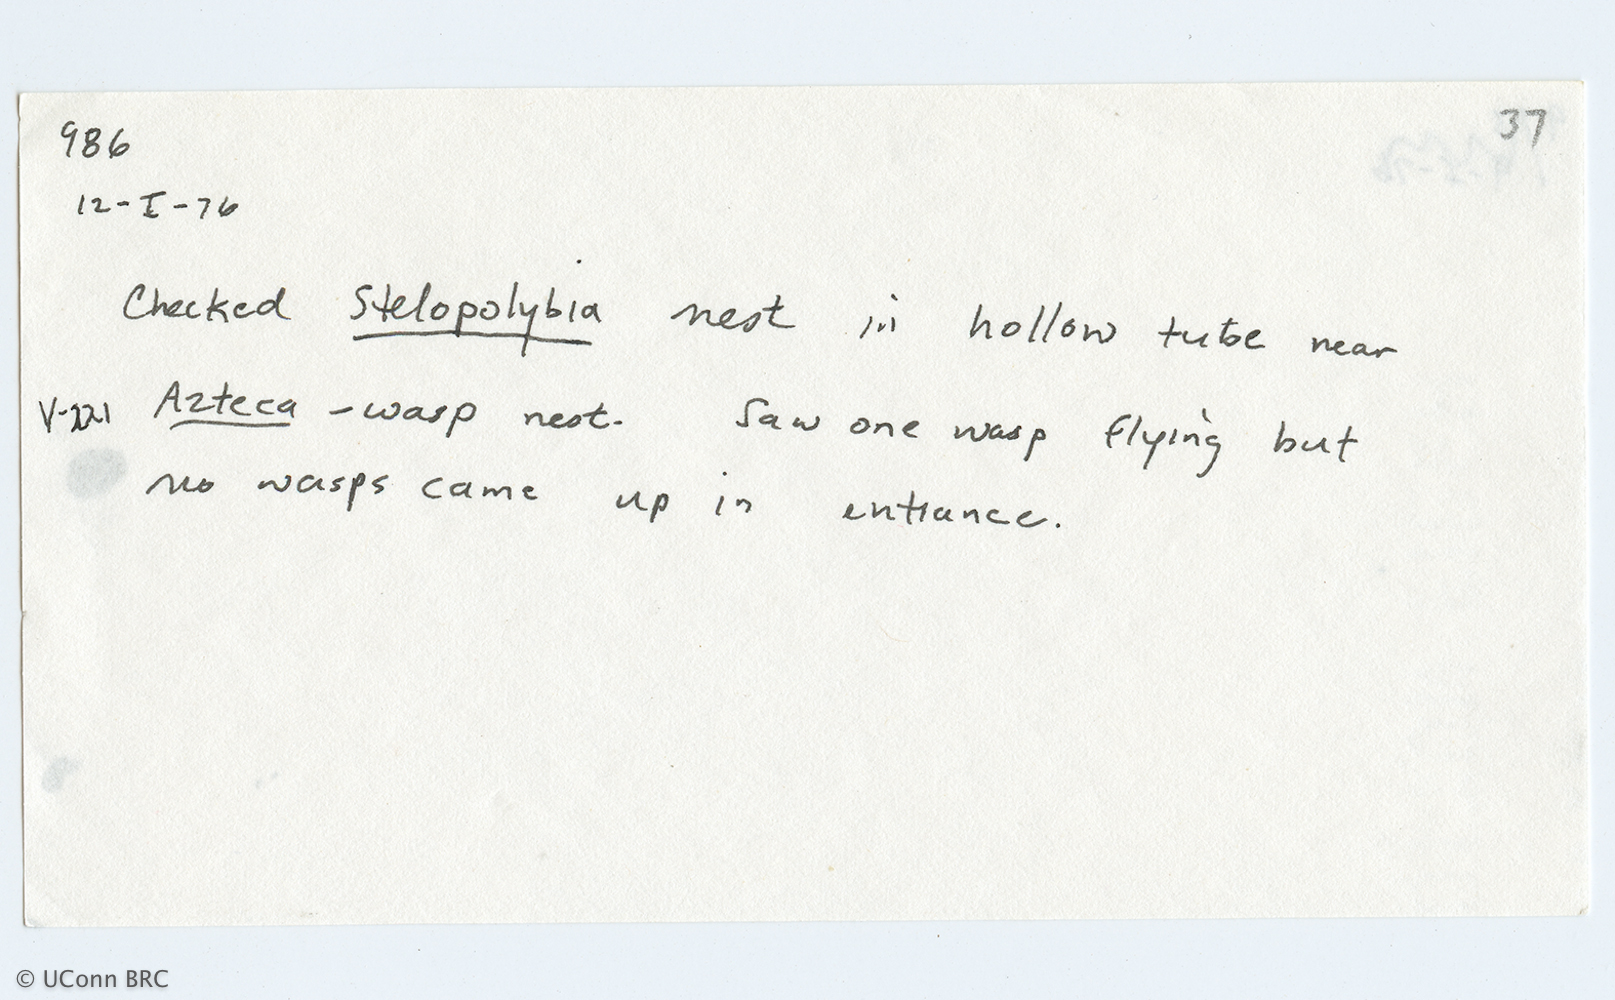 986
37
12-I-76
Checked Stelopolybia nest in hollow tube near
V-221 Azteca - wasp nest. Saw one wasp flying but
no wasps came up in entrance.
© UConn BRC